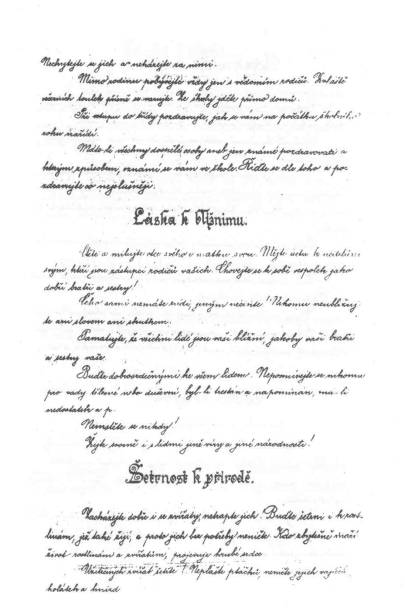 Nechytejte se jich a neházejte za nimi.
Mimo rodinu pobývejte vždy jen s vědomím rodičů. Zvláště
večerních toulek přísně se varujte. Ze školy jděte přímo domů.
Při vstupu do třídy pozdravujte, jak se vám na počátku školního
roku nařídí.
Máte-li všechny dospělé osoby aneb jen známé pozdravovati a
kterým způsobem, oznámí se vám ve škole. Řiďte se dle toho a po-
zdravujte co nejslušněji.
Láska k bližnímu.
Ctěte a milujte otce svého a matku svou. Mějte úctu k učitelům
svým, kteří jsou zástupci rodičů vašich. Chovejte se k sobě vespolek jako
dobří bratři a sestry!
Čeho sami nemáte rádi, jiným nečiňte! Nikomu neubližuj-
te ani slovem ani skutkem.
Pamatujte, že všichni lidé jsou vaši bližní, jakoby vaši bratři
a sestry vaše.
Buďte dobrosrdečnými ke všem lidem. Neposmívejte se nikomu
pro vady tělesné nebo duševní, byl-li trestán a napomínán, má-li
nedostatek a p.
Nemstěte se nikdy!
Žijte svorně i s lidmi jiné víry a jiné národnosti!
Šetrnost k přírodě.
Nacházejte dobře i se zvířaty, netrapte jich! Buďte šetrni i k rost-
linám, jež také žijí, a proto jich bez potřeby neničte. Kdo zbytečně maří
život rostlinám a zvířatům, projevuje hrubé srdce.
Užitečných zvířat šetřte! Neplašte ptáčků, neničte jejich vajíček
holátek a hnízd